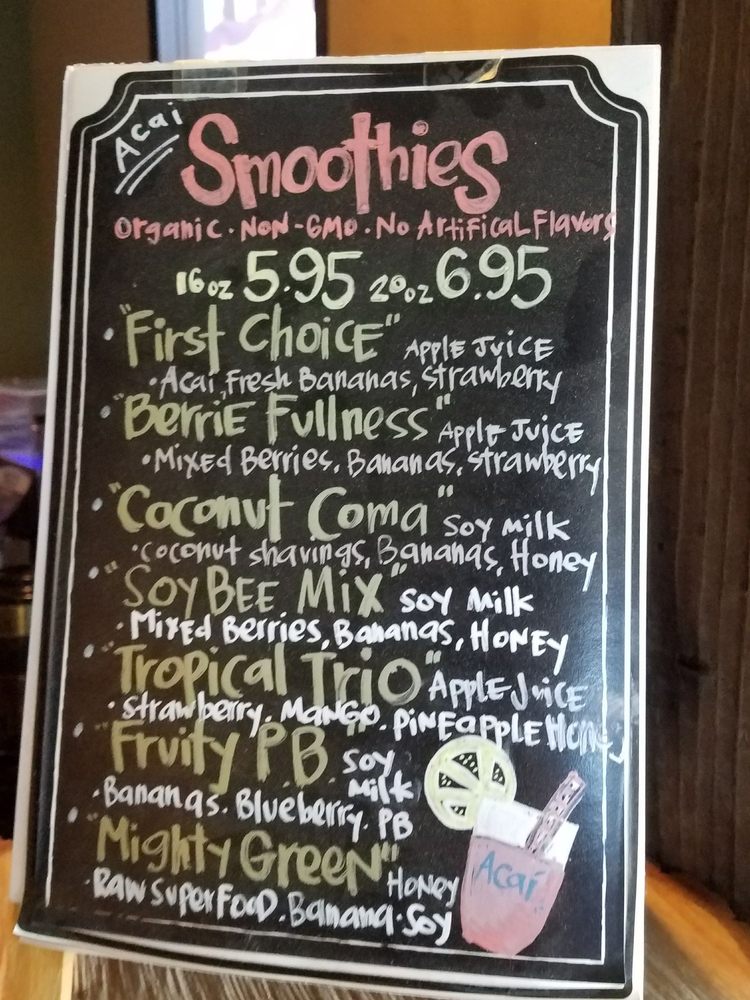 Acai
Smoothies
Organic · NON-GMO · No Artifical Flavors
16oz 5.95 20oz 6.95
· "First Choice" Apple Juice
· Acai, Fresh Bananas, Strawberry
· "Berrie Fullness" Apple Juice
· Mixed Berries, Bananas, Strawberry
· "Coconut Coma" Soy Milk
· coconut shavings, Bananas, Honey
· "Soy Bee Mix" Soy Milk
· Mixed Berries, Bananas, Honey
· "Tropical Trio" Apple Juice
· Strawberry. Mango. Pineapple Honey
· "Fruity P.B." Soy
Milk
· Bananas. Blueberry. PB
· "Mighty Green" Honey
· Raw Superfood. Banana. Soy
Acai